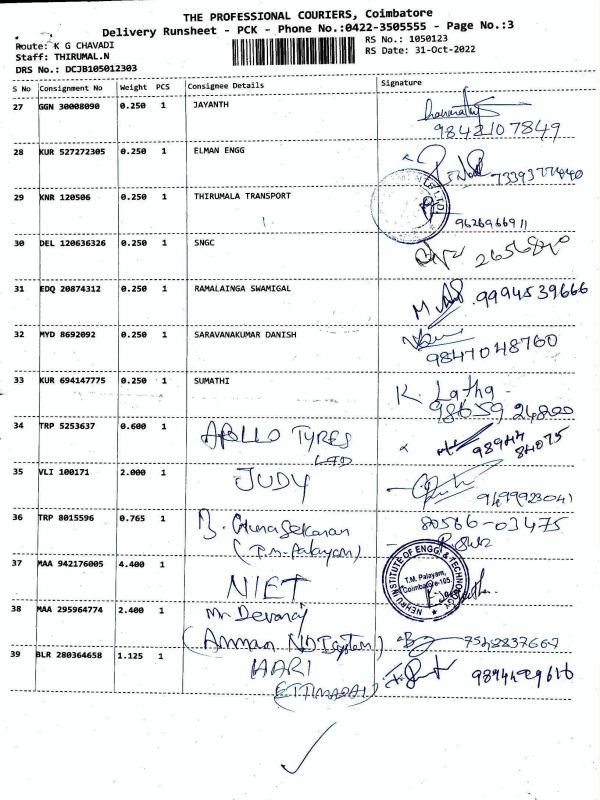 THE PROFESSIONAL COURIERS, Coimbatore
Delivery Runsheet - PCK - Phone No.:0422-3505555 - Page No.:3
Route: K G CHAVADI
RS No.: 1050123
Staff: THIRUMAL.N
RS Date: 31-Oct-2022
DRS No.: DCJB105012303
S No Consignment No Weight PCS Consignee Details Signature
27 GGN 30008090 0.250 1 JAYANTH
9842107849
28 KUR 527272305 0.250 1 ELMAN ENGG
29 KNR 120506 0.250 1 THIRUMALA TRANSPORT
9626966911
30 DEL 120636326 0.250 1 SNGC
31 EDQ 20874312 0.250 1 RAMALAINGA SWAMIGAL
9994539666
32 MYD 8692092 0.250 1 SARAVANAKUMAR DANISH
9847048760
33 KUR 694147775 0.250 1 SUMATHI
K. Latha
98659 24800
34 TRP 5253637 0.600 1 APOLLO TYRES
LTD
98944
84075
35 VLI 100171 2.000 1 JUDY
9499923041
36 TRP 8015596 0.765 1 Gunasekaran
80566-03475
(T.M. Palayam)
37 MAA 942176005 4.400 1 NIET
NEHRU INSTITUTE OF ENGG & TECHNOLOGY
T.M. Palayam,
Coimbatore-105.
38 MAA 295964774 2.400 1 Mr Devaraj
(Amman NDI System)
7548837667
39 BLR 280364658 1.125 1 HARI
(ETTIMADAI)